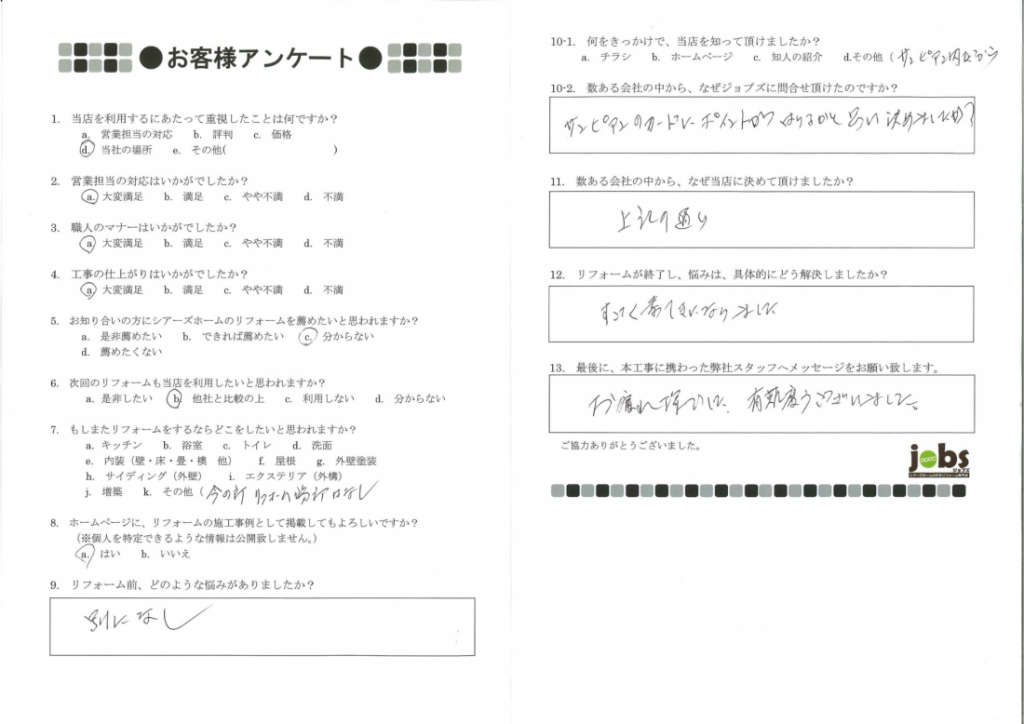 ●お客様アンケート●
1. 当店を利用するにあたって重視したことは何ですか？
a. 営業担当の対応 b. 評判 c. 価格
d. 当社の場所 e. その他( )
2. 営業担当の対応はいかがでしたか？
a. 大変満足 b. 満足 c. やや不満 d. 不満
3. 職人のマナーはいかがでしたか？
a. 大変満足 b. 満足 c. やや不満 d. 不満
4. 工事の仕上がりはいかがでしたか？
a. 大変満足 b. 満足 c. やや不満 d. 不満
5. お知り合いの方にシアーズホームのリフォームを薦めたいと思われますか？
a. 是非薦めたい b. できれば薦めたい c. 分からない
d. 薦めたくない
6. 次回のリフォームも当店を利用したいと思われますか？
a. 是非したい b. 他社と比較の上 c. 利用しない d. 分からない
7. もしまたリフォームをするならどこをしたいと思われますか？
a. キッチン b. 浴室 c. トイレ d. 洗面
e. 内装（壁・床・畳・襖 他） f. 屋根 g. 外壁塗装
h. サイディング（外壁） i. エクステリア（外構）
j. 増築 k. その他（今の所リフォーム場所はなし
8. ホームページに、リフォームの施工事例として掲載してもよろしいですか？
（※個人を特定できるような情報は公開致しません。）
a. はい b. いいえ
9. リフォーム前、どのような悩みがありましたか？
別になし
10-1. 何をきっかけで、当店を知って頂けましたか？
a. チラシ b. ホームページ c. 知人の紹介 d.その他（サンピアン内
10-2. 数ある会社の中から、なぜジョブズに問合せ頂けたのですか？
サンピアンのカードにポイントが 思い決めました
11. 数ある会社の中から、なぜ当店に決めて頂けましたか？
上記の通り
12. リフォームが終了し、悩みは、具体的にどう解決しましたか？
なりました
13. 最後に、本工事に携わった弊社スタッフへメッセージをお願い致します。
お疲れ様でした。有難度うございました。
ご協力ありがとうございました。
jobs